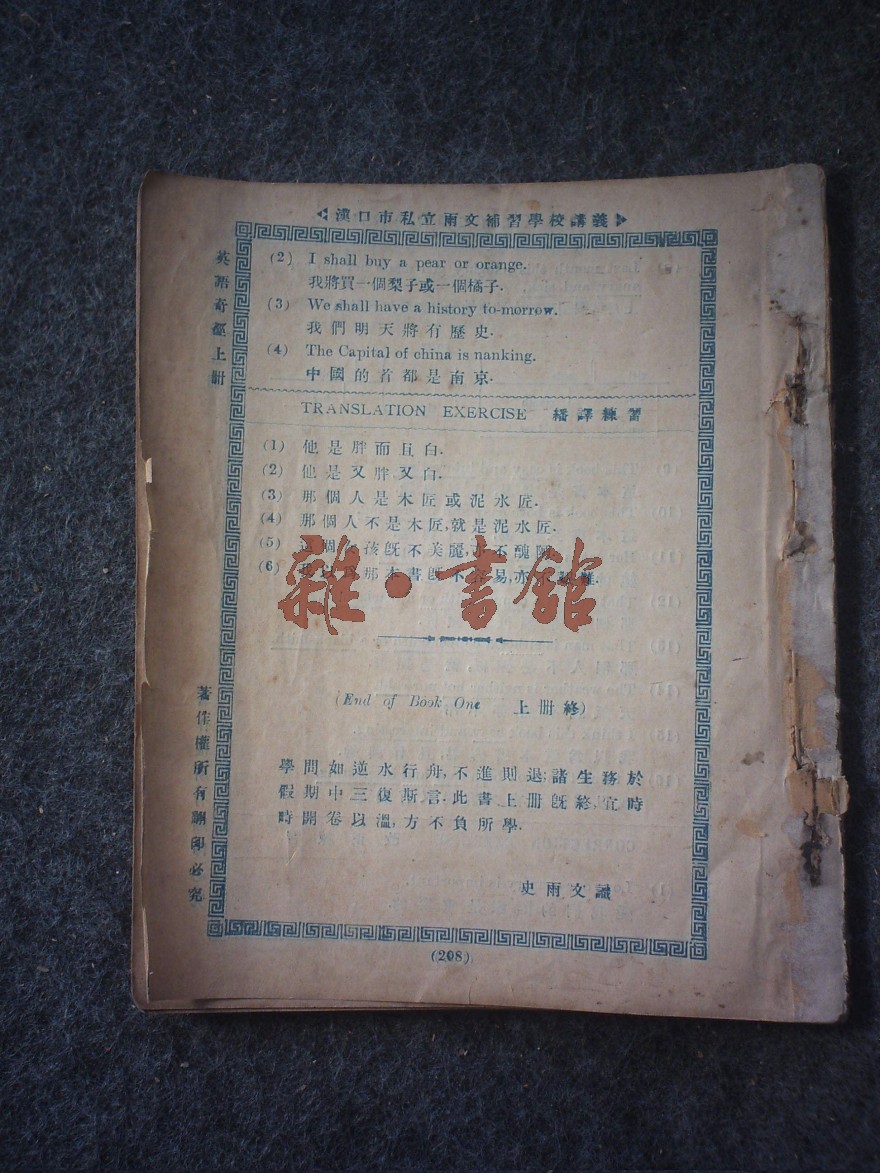 漢口市私立雨文補習學校講義
英語奇盤上冊
(2) I shall buy a pear or orange.
我將買一個梨子或一個橘子.
(3) We shall have a history to-morrow.
我們明天將有歷史.
(4) The Capital of china is nanking.
中國的首都是南京.
TRANSLATION EXERCISE 繙譯練習
(1) 他是胖而且白.
(2) 他是又胖又白.
(3) 那個人是木匠或泥水匠.
(4) 那個人不是木匠,就是泥水匠.
(5) 這個孩旣不美麗,亦不醜陋.
(6) 那本書旣不易,亦
雜·書館
(End of Book One 上冊終)
學問如逆水行舟,不進則退;諸生務於
假期中三復斯言.此書上冊旣終,宜時
時開卷以溫,方不負所學.
史雨文識
著作權所有翻印必究
(208)